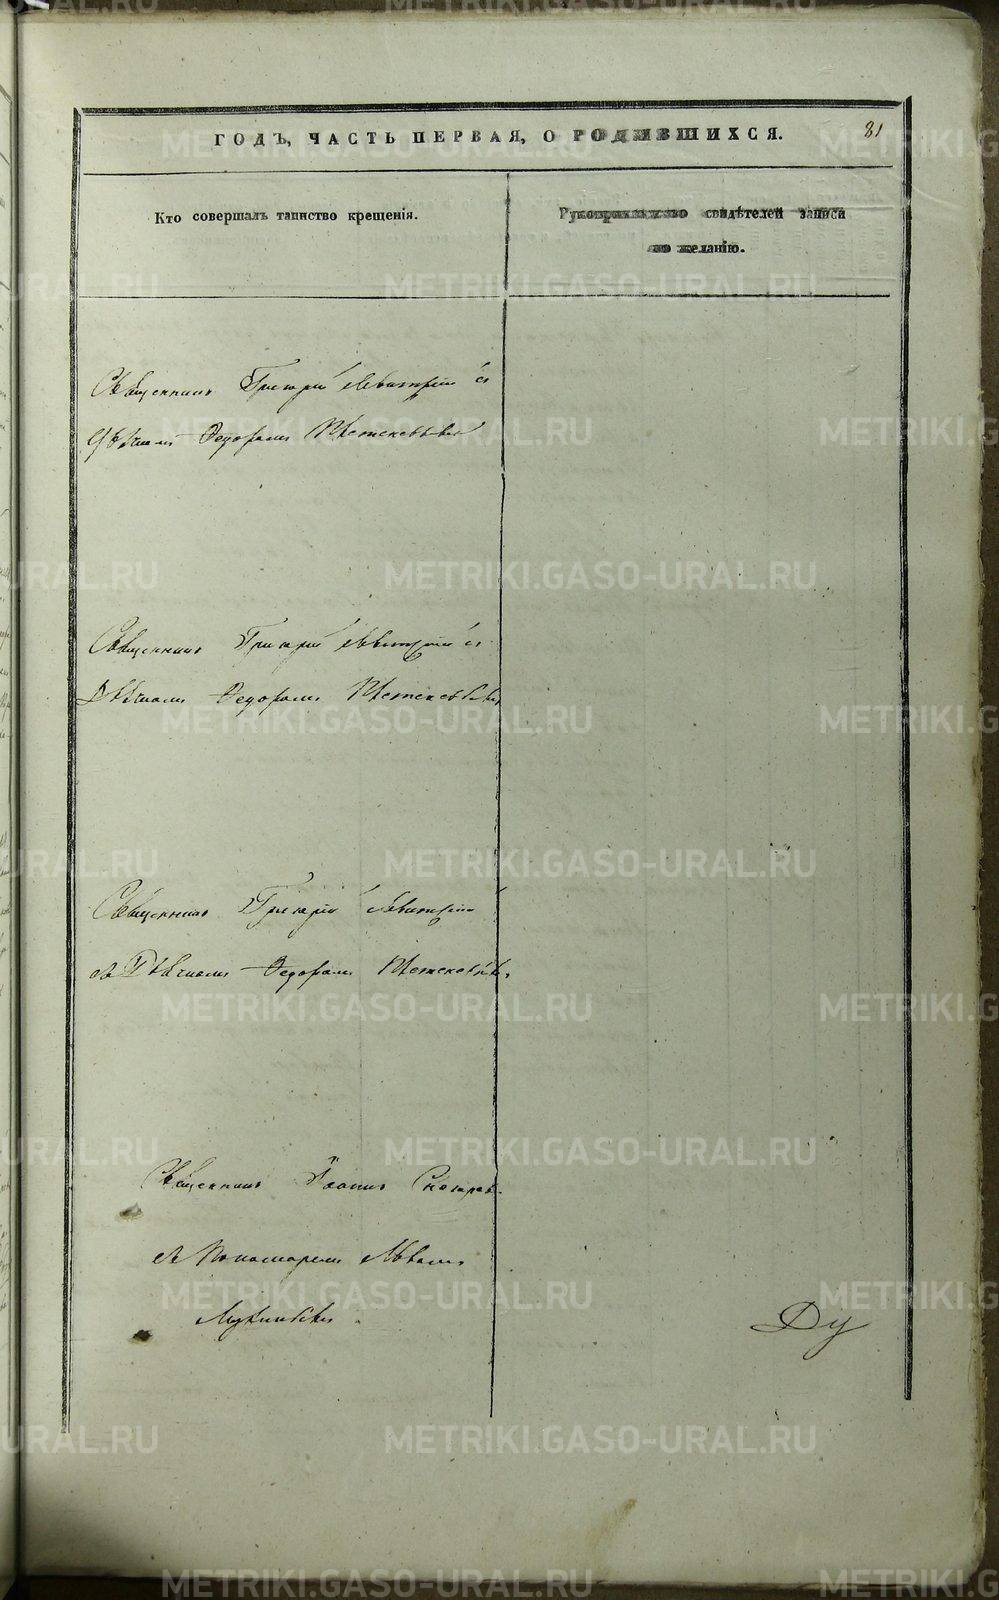 ГОДЪ, ЧАСТЬ ПЕРВАЯ, О РОДИВШИХСЯ.
81
Кто совершалъ таинство крещенія.
Рукоприкладство свидѣтелей записи
по желанію.
Священникъ Григорій Левитскій съ
Дьячкомъ Федоромъ
Священникъ Григорій Левитскій съ
Дьячкомъ Федоромъ
Священникъ Григорій Левитскій
съ Дьячкомъ Федоромъ
Священникъ Іоаннъ
съ Пономаремъ Львомъ
Ду
METRIKI.GASO-URAL.RU